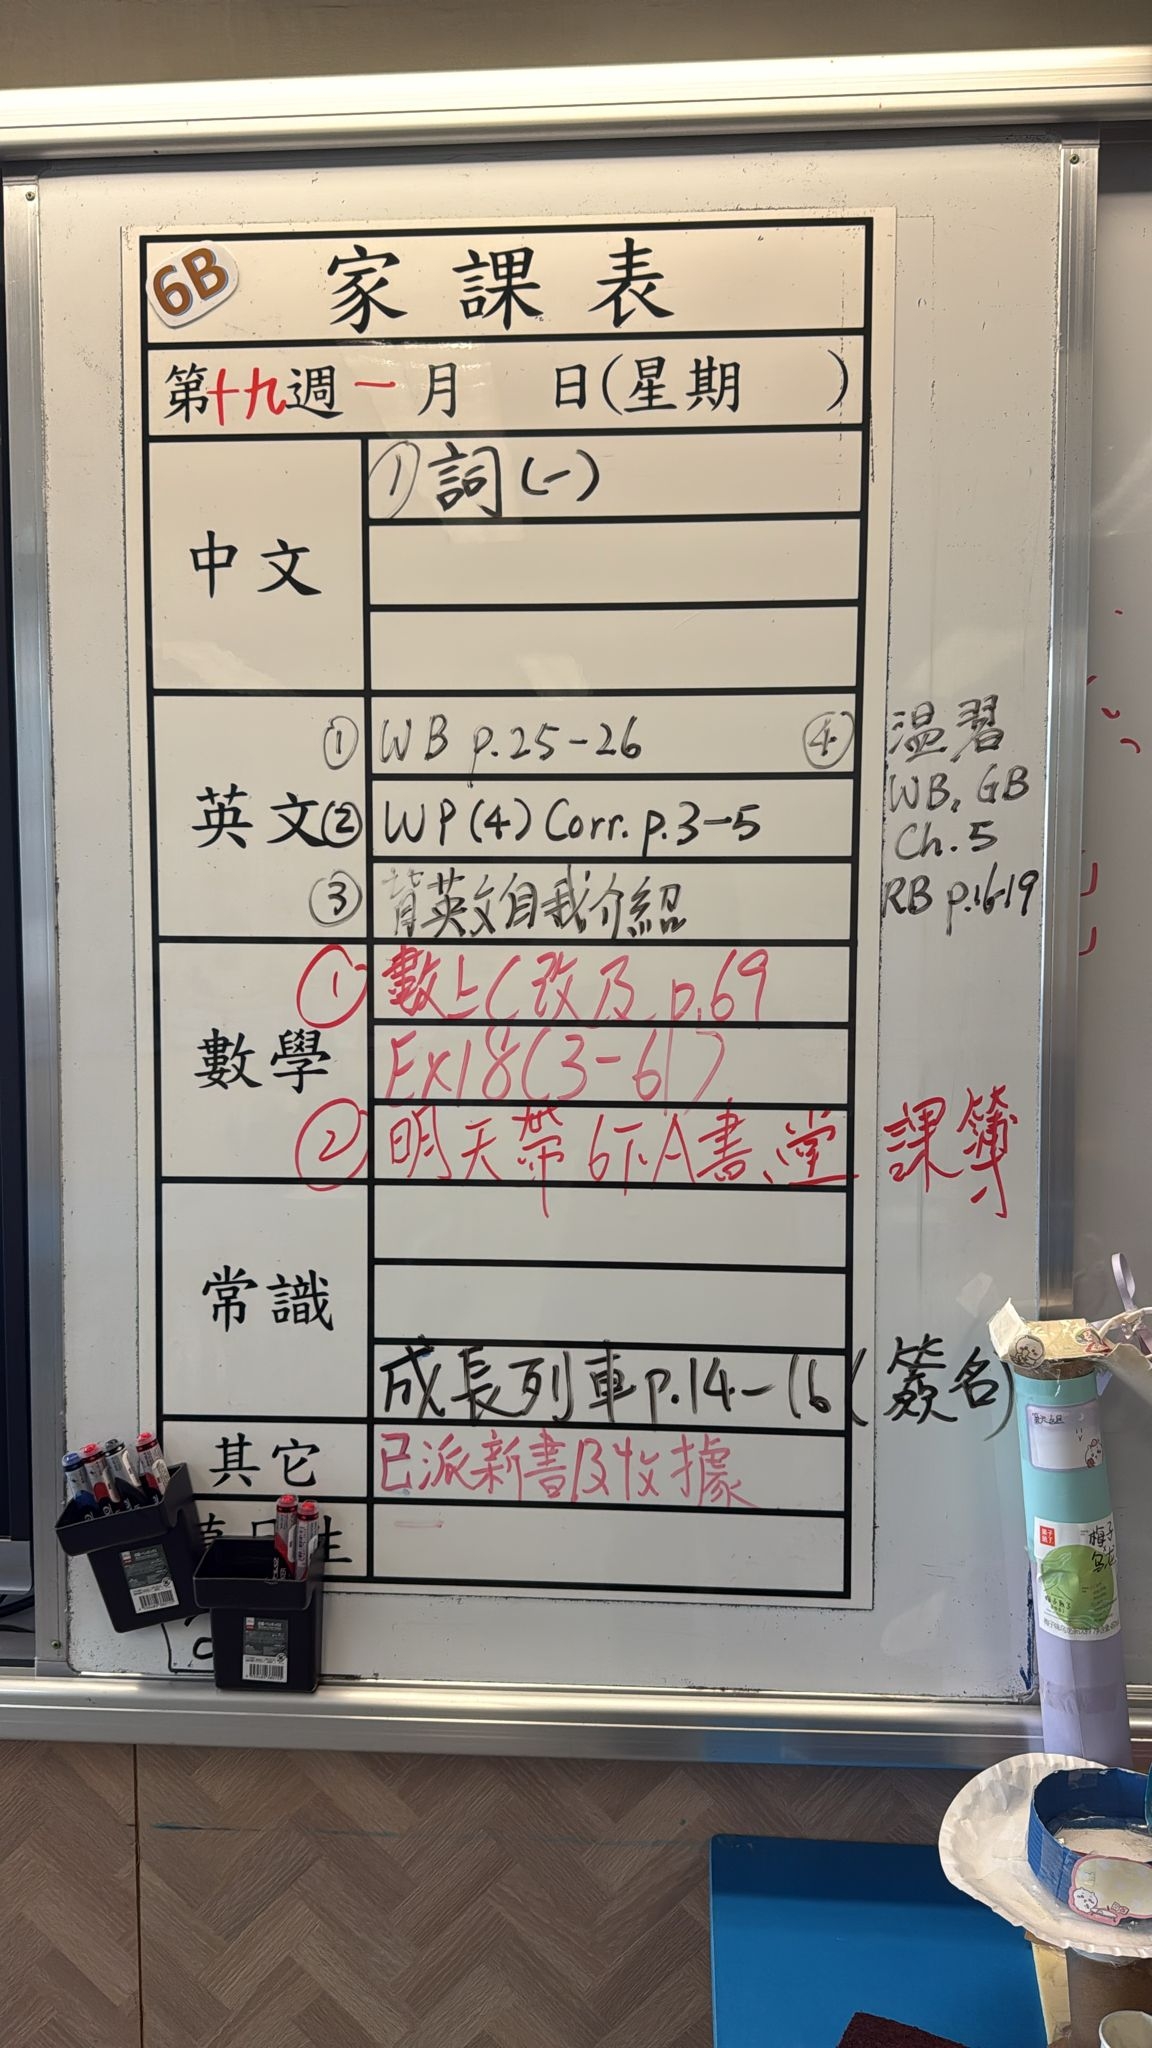 6B 家課表
第十九週一月 日(星期 )
中文
① 詞(一)
英文
① WB p.25-26
② WP(4) Corr. p.3-5
③ 背英文自我介紹
④ 温習
WB, GB
Ch. 5
RB p.16-19
數學
① 數上C改及 p.69
Ex18(3-6)
② 明天帶6下A書、堂課簿
常識
成長列車p.14-16(簽名)
其它
已派新書及收據
生
梅子